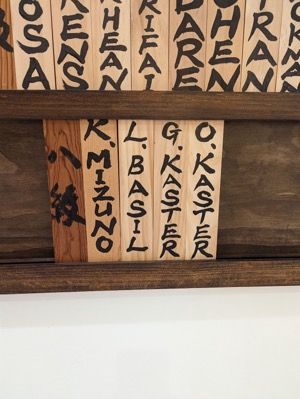 OSA
RENS
HEAN
RIFAI
DAREN
HEN
RAN
八級
K. MIZUNO
L. BASIL
G. KASTER
O. KASTER